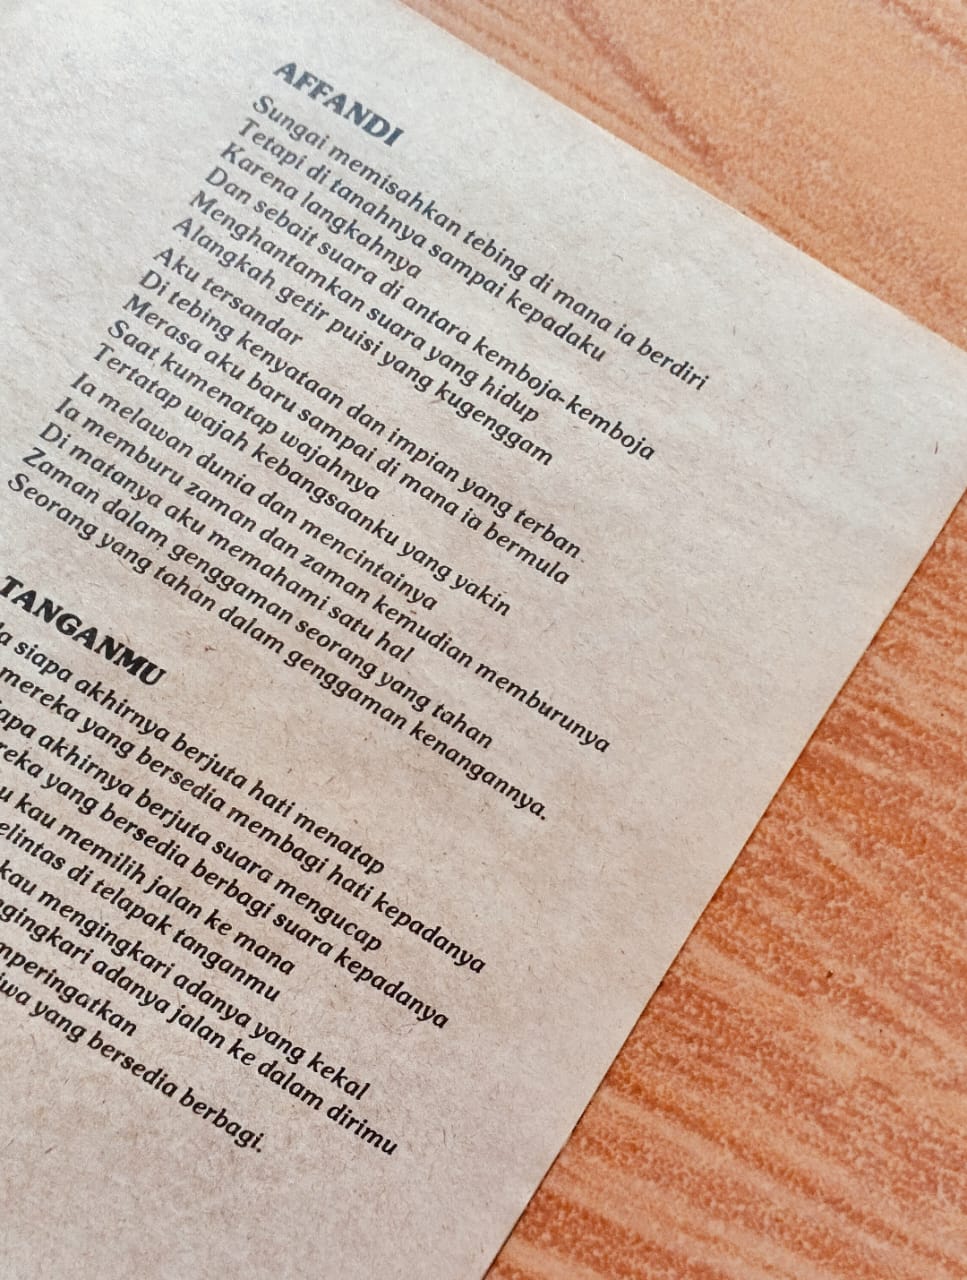 AFFANDI
Sungai memisahkan tebing di mana ia berdiri
Tetapi di tanahnya sampai kepadaku
Karena langkahnya
Dan sebait suara di antara kemboja-kemboja
Menghantamkan suara yang hidup
Alangkah getir puisi yang kugenggam
Aku tersandar
Di tebing kenyataan dan impian yang terban
Merasa aku baru sampai di mana ia bermula
Saat kumenatap wajahnya
Tertatap wajah kebangsaanku yang yakin
Ia melawan dunia dan mencintainya
Ia memburu zaman dan zaman kemudian memburunya
Di matanya aku memahami satu hal
Zaman dalam genggaman seorang yang tahan
Seorang yang tahan dalam genggaman kenangannya.
TANGANMU
siapa akhirnya berjuta hati menatap
mereka yang bersedia membagi hati kepadanya
akhirnya berjuta suara mengucap
yang bersedia berbagi suara kepadanya
kau memilih jalan ke mana
di telapak tanganmu
kau mengingkari adanya yang kekal
adanya jalan ke dalam dirimu
yang bersedia berbagi.